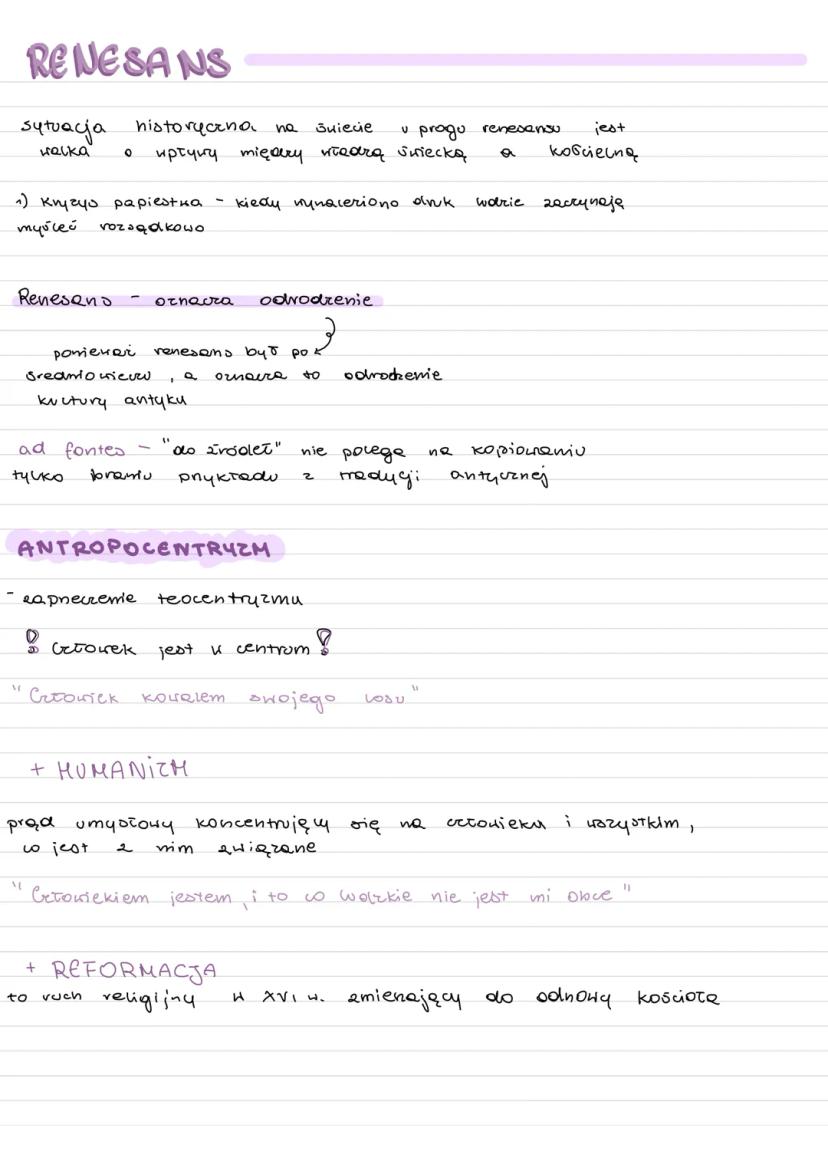 RENESANS
sytuacja historyczna na świecie u progu renesansu jest
walka o wpływy między władzą świecką a kościelną
1) Kryzys papiestwa - kiedy wynaleziono druk ludzie zaczynają
myśleć rozsądkowo
Renesans - oznacza odrodzenie
ponieważ renesans był po
średniowieczu, a oznacza to odrodzenie
kultury antyku
ad fontes - "do źródeł" nie polega na kopiowaniu
tylko braniu przykładu z tradycji antycznej
ANTROPOCENTRYZM
- zaprzeczenie teocentryzmu
! Człowiek jest w centrum !
"Człowiek kowalem swojego losu"
+ HUMANIZM
prąd umysłowy koncentrujący się na człowieku i wszystkim,
co jest z nim związane
"Człowiekiem jestem, i to co ludzkie nie jest mi obce"
+ REFORMACJA
to ruch religijny w XVI w. zmierzający do odnowy kościoła